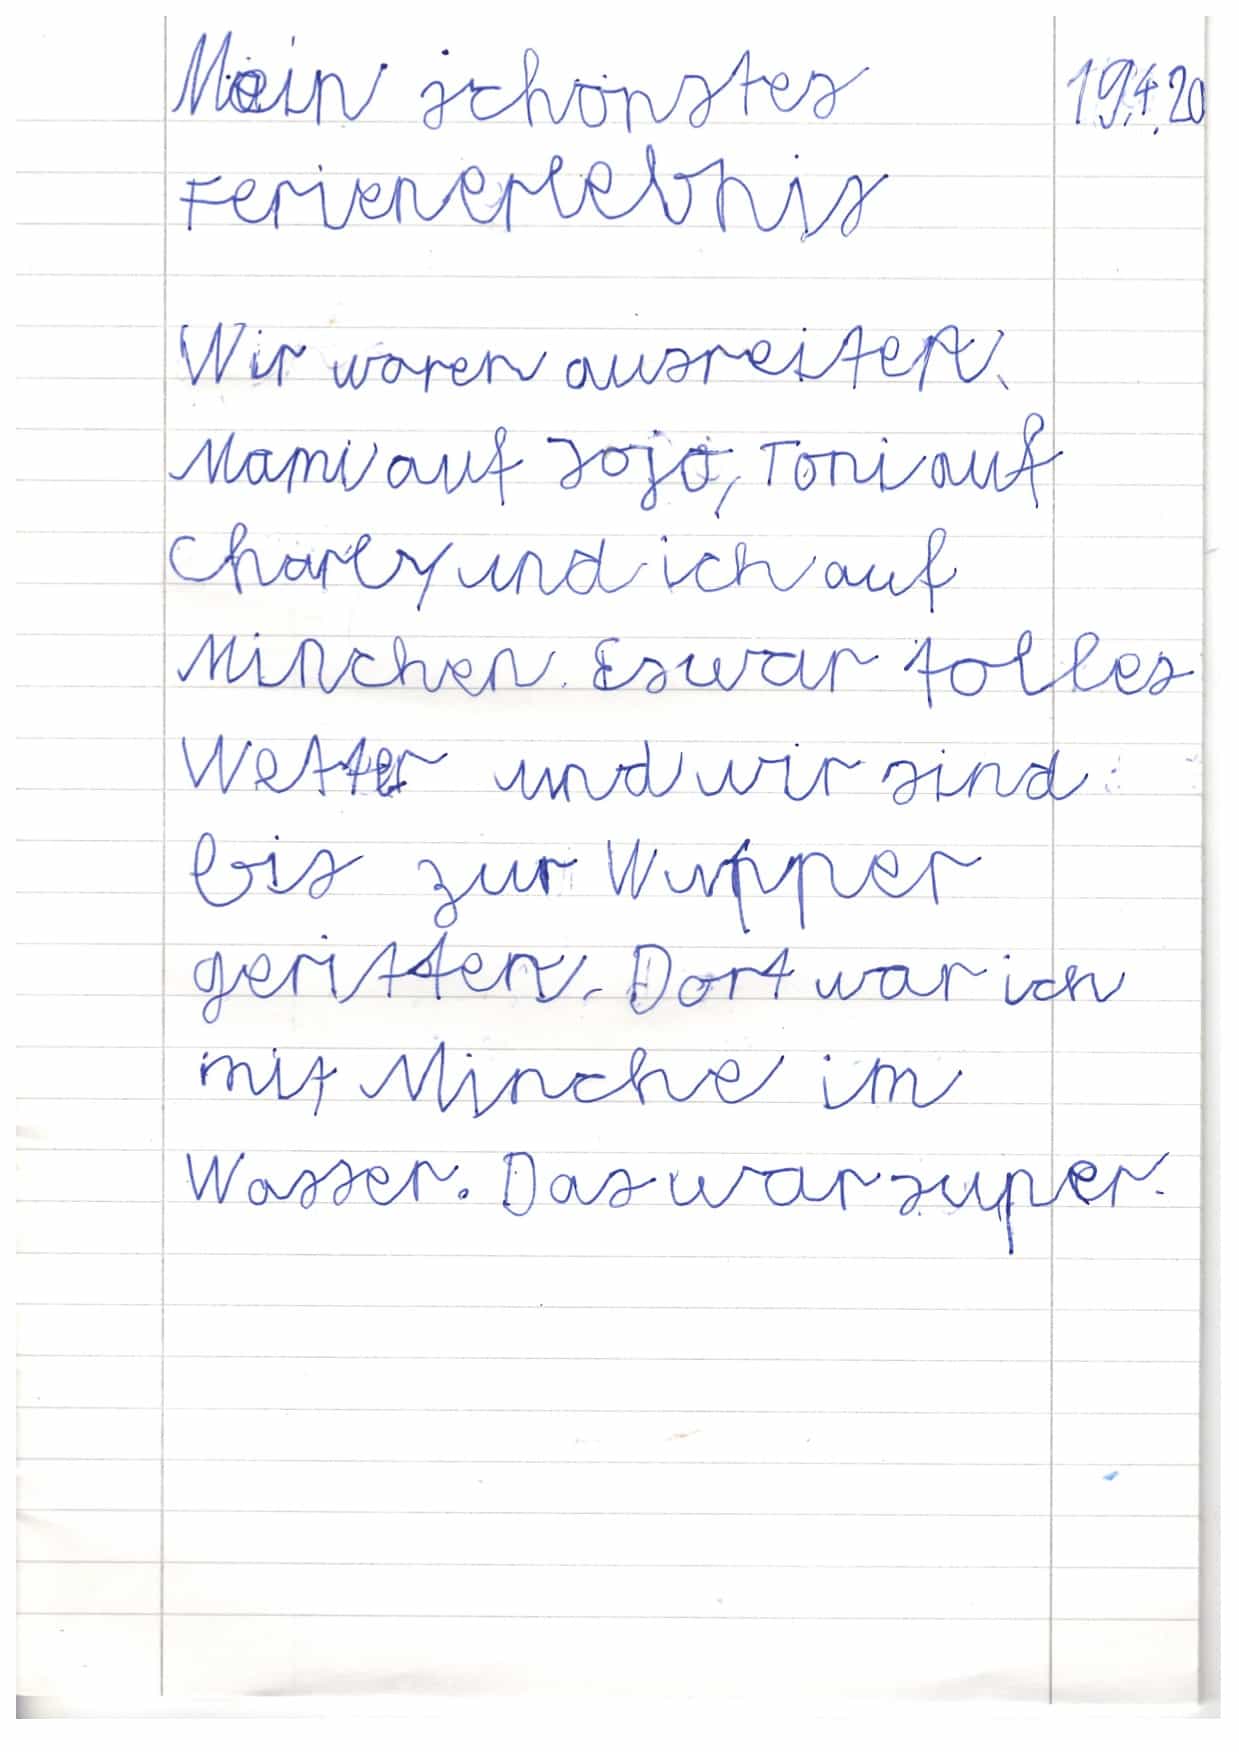 Mein schönstes 19.4.20
Ferienerlebnis
Wir waren ausreiten.
Mami auf Jojo, Toni auf
Charly und ich auf
Minchen. Es war tolles
Wetter und wir sind
bis zur Wupper
geritten. Dort war ich
mit Minche im
Wasser. Das war super.